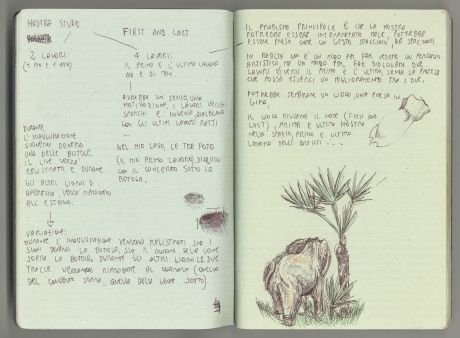 MOSTRA STUDIO
2 LAVORI
(1 MIO E 1 TOX)
DURANTE
L'INAUGURAZIONE
SUONERÒ DENTRO
UNO DELLE BOTOLE.
IL LIVE VERRÀ
REGISTRATO E DURANTE
GLI ALTRI GIORNI DI
APERTURA VERRÀ RIPRODOTTO
ALL'ESTERNO.
FIRST AND LAST
4 LAVORI:
IL PRIMO E L'ULTIMO LAVORO
MIO E DI TOX.
AVREBBE UN SENSO, UNA
MOTIVAZIONE, I LAVORI VECCHI
SPORCHI E IN DIALOGO
CON GLI ULTIMI LAVORI FATTI
NEL MIO CASO, LE TRE FOTO
(IL MIO PRIMO LAVORO) DIALOGANO
CON IL CONCERTO SOTTO LA
BOTOLA.
VARIAZIONE:
DURANTE L'INAUGURAZIONE VERRANNO REGISTRATI SIA I
SUONI DENTRO LA BOTOLA, SIA IL RUMORE DELLA GENTE
SOPRA LA BOTOLA. DURANTE GLI ALTRI GIORNI LE DUE
TRACCE VERRANNO RIPRODOTTE AL CONTRARIO (QUELLA
DEL CONCERTO SOPRA, QUELLA DELLA GENTE SOTTO).
IL PROBLEMA PRINCIPALE È CHE LA MOSTRA
POTREBBE ESSERE INTERPRETATA MALE, POTREBBE
ESSERE PRESO COME UN GESTO SPOCCHIOSO, DA SPACCONI.
IN REALTÀ NON È UN MODO PER FAR VEDERE UN PERCORSO
ARTISTICO MA UN MODO PER FAR DIALOGARE DUE
LAVORI DIVERSI IL PRIMO E L'ULTIMO, SENZA LA PRETESA
CHE POSSA ESSERCI UN MIGLIORAMENTO TRA I DUE.
POTREBBE SEMBRARE UN GIOCO, UNA PRESA IN
GIRO,
IL GIOCO RIGUARDA IL NOME (FIRST AND
LAST), PRIMA E ULTIMA MOSTRA
NELLO SPAZIO, PRIMO E ULTIMO
LAVORO DELL'ARTISTA ---